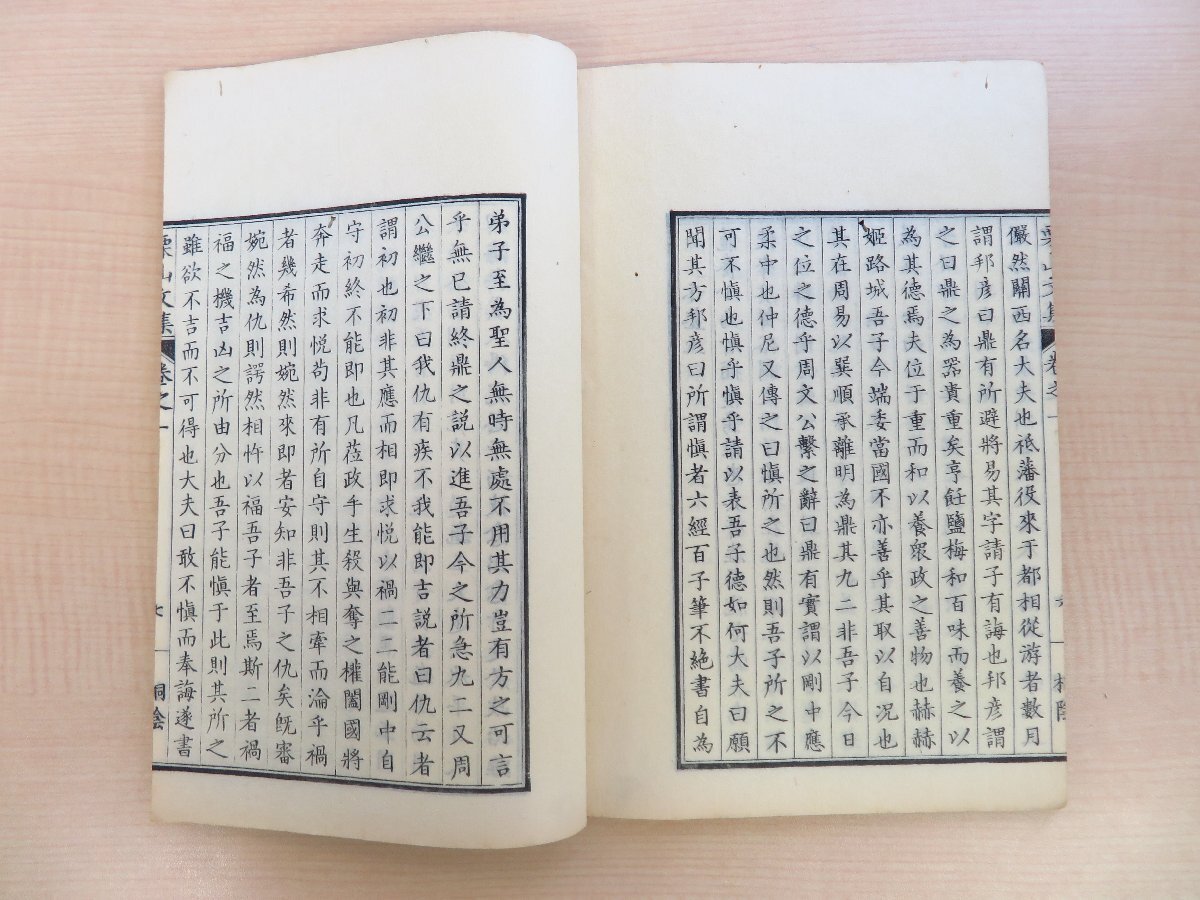 儼然關西名大夫也祗藩役來于都相從游者數月
謂邦彦曰鼎有所避將易其字請子有誨也邦彦謂
之曰鼎之為器貴重矣亨飪鹽梅和百味而養之以
為其德焉夫位于重而和以養衆政之善物也赫赫
姬路城吾子今端委當國不亦善乎其取以自况也
其在周易以巽順承離明為鼎其九二非吾子今日
之位之德乎周文公繫之辭曰鼎有實謂以剛中應
柔中也仲尼又傳之曰慎所之也然則吾子所之不
可不慎也慎乎慎乎請以表吾子德如何大夫曰願
聞其方邦彦曰所謂慎者六經百子筆不絶書自為
弟子至為聖人無時無處不用其力豈有方之可言
乎無已請終鼎之説以進吾子今之所急九二又周
公繼之下曰我仇有疾不我能即吉説者曰仇云者
謂初也初非其應而相即求悦以禍二二能剛中自
守初終不能即也凡莅政乎生殺與奪之權闔國將
奔走而求悦苟非有所自守則其不相牽而淪乎禍
者幾希然則婉然來即者安知非吾子之仇矣既審
婉然為仇則諤然相忤以福吾子者至焉斯二者禍
福之機吉凶之所由分也吾子能慎于此則其所之
雖欲不吉而不可得也大夫曰敢不慎而奉誨遂書
栗山文集 卷之一 七 桐陰